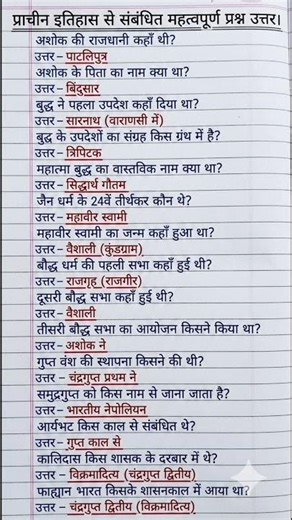 प्राचीन इतिहास से संबंधित महत्वपूर्ण प्रश्न उत्तर।
अशोक की राजधानी कहाँ थी?
उत्तर – पाटलिपुत्र
अशोक के पिता का नाम क्या था?
उत्तर – बिंदुसार
बुद्ध ने पहला उपदेश कहाँ दिया था?
उत्तर – सारनाथ (वाराणसी में)
बुद्ध के उपदेशों का संग्रह किस ग्रंथ में है?
उत्तर – त्रिपिटक
महात्मा बुद्ध का वास्तविक नाम क्या था?
उत्तर – सिद्धार्थ गौतम
जैन धर्म के 24वें तीर्थंकर कौन थे?
उत्तर – महावीर स्वामी
महावीर स्वामी का जन्म कहाँ हुआ था?
उत्तर – वैशाली (कुंडग्राम)
बौद्ध धर्म की पहली सभा कहाँ हुई थी?
उत्तर – राजगृह (राजगीर)
दूसरी बौद्ध सभा कहाँ हुई थी?
उत्तर – वैशाली
तीसरी बौद्ध सभा का आयोजन किसने किया था?
उत्तर – अशोक ने
गुप्त वंश की स्थापना किसने की थी?
उत्तर – चंद्रगुप्त प्रथम ने
समुद्रगुप्त को किस नाम से जाना जाता है?
उत्तर – भारतीय नेपोलियन
आर्यभट किस काल से संबंधित थे?
उत्तर – गुप्त काल से
कालिदास किस शासक के दरबार में थे?
उत्तर – विक्रमादित्य (चंद्रगुप्त द्वितीय)
फाह्यान भारत किसके शासनकाल में आया था?
उत्तर – चंद्रगुप्त द्वितीय (विक्रमादित्य)